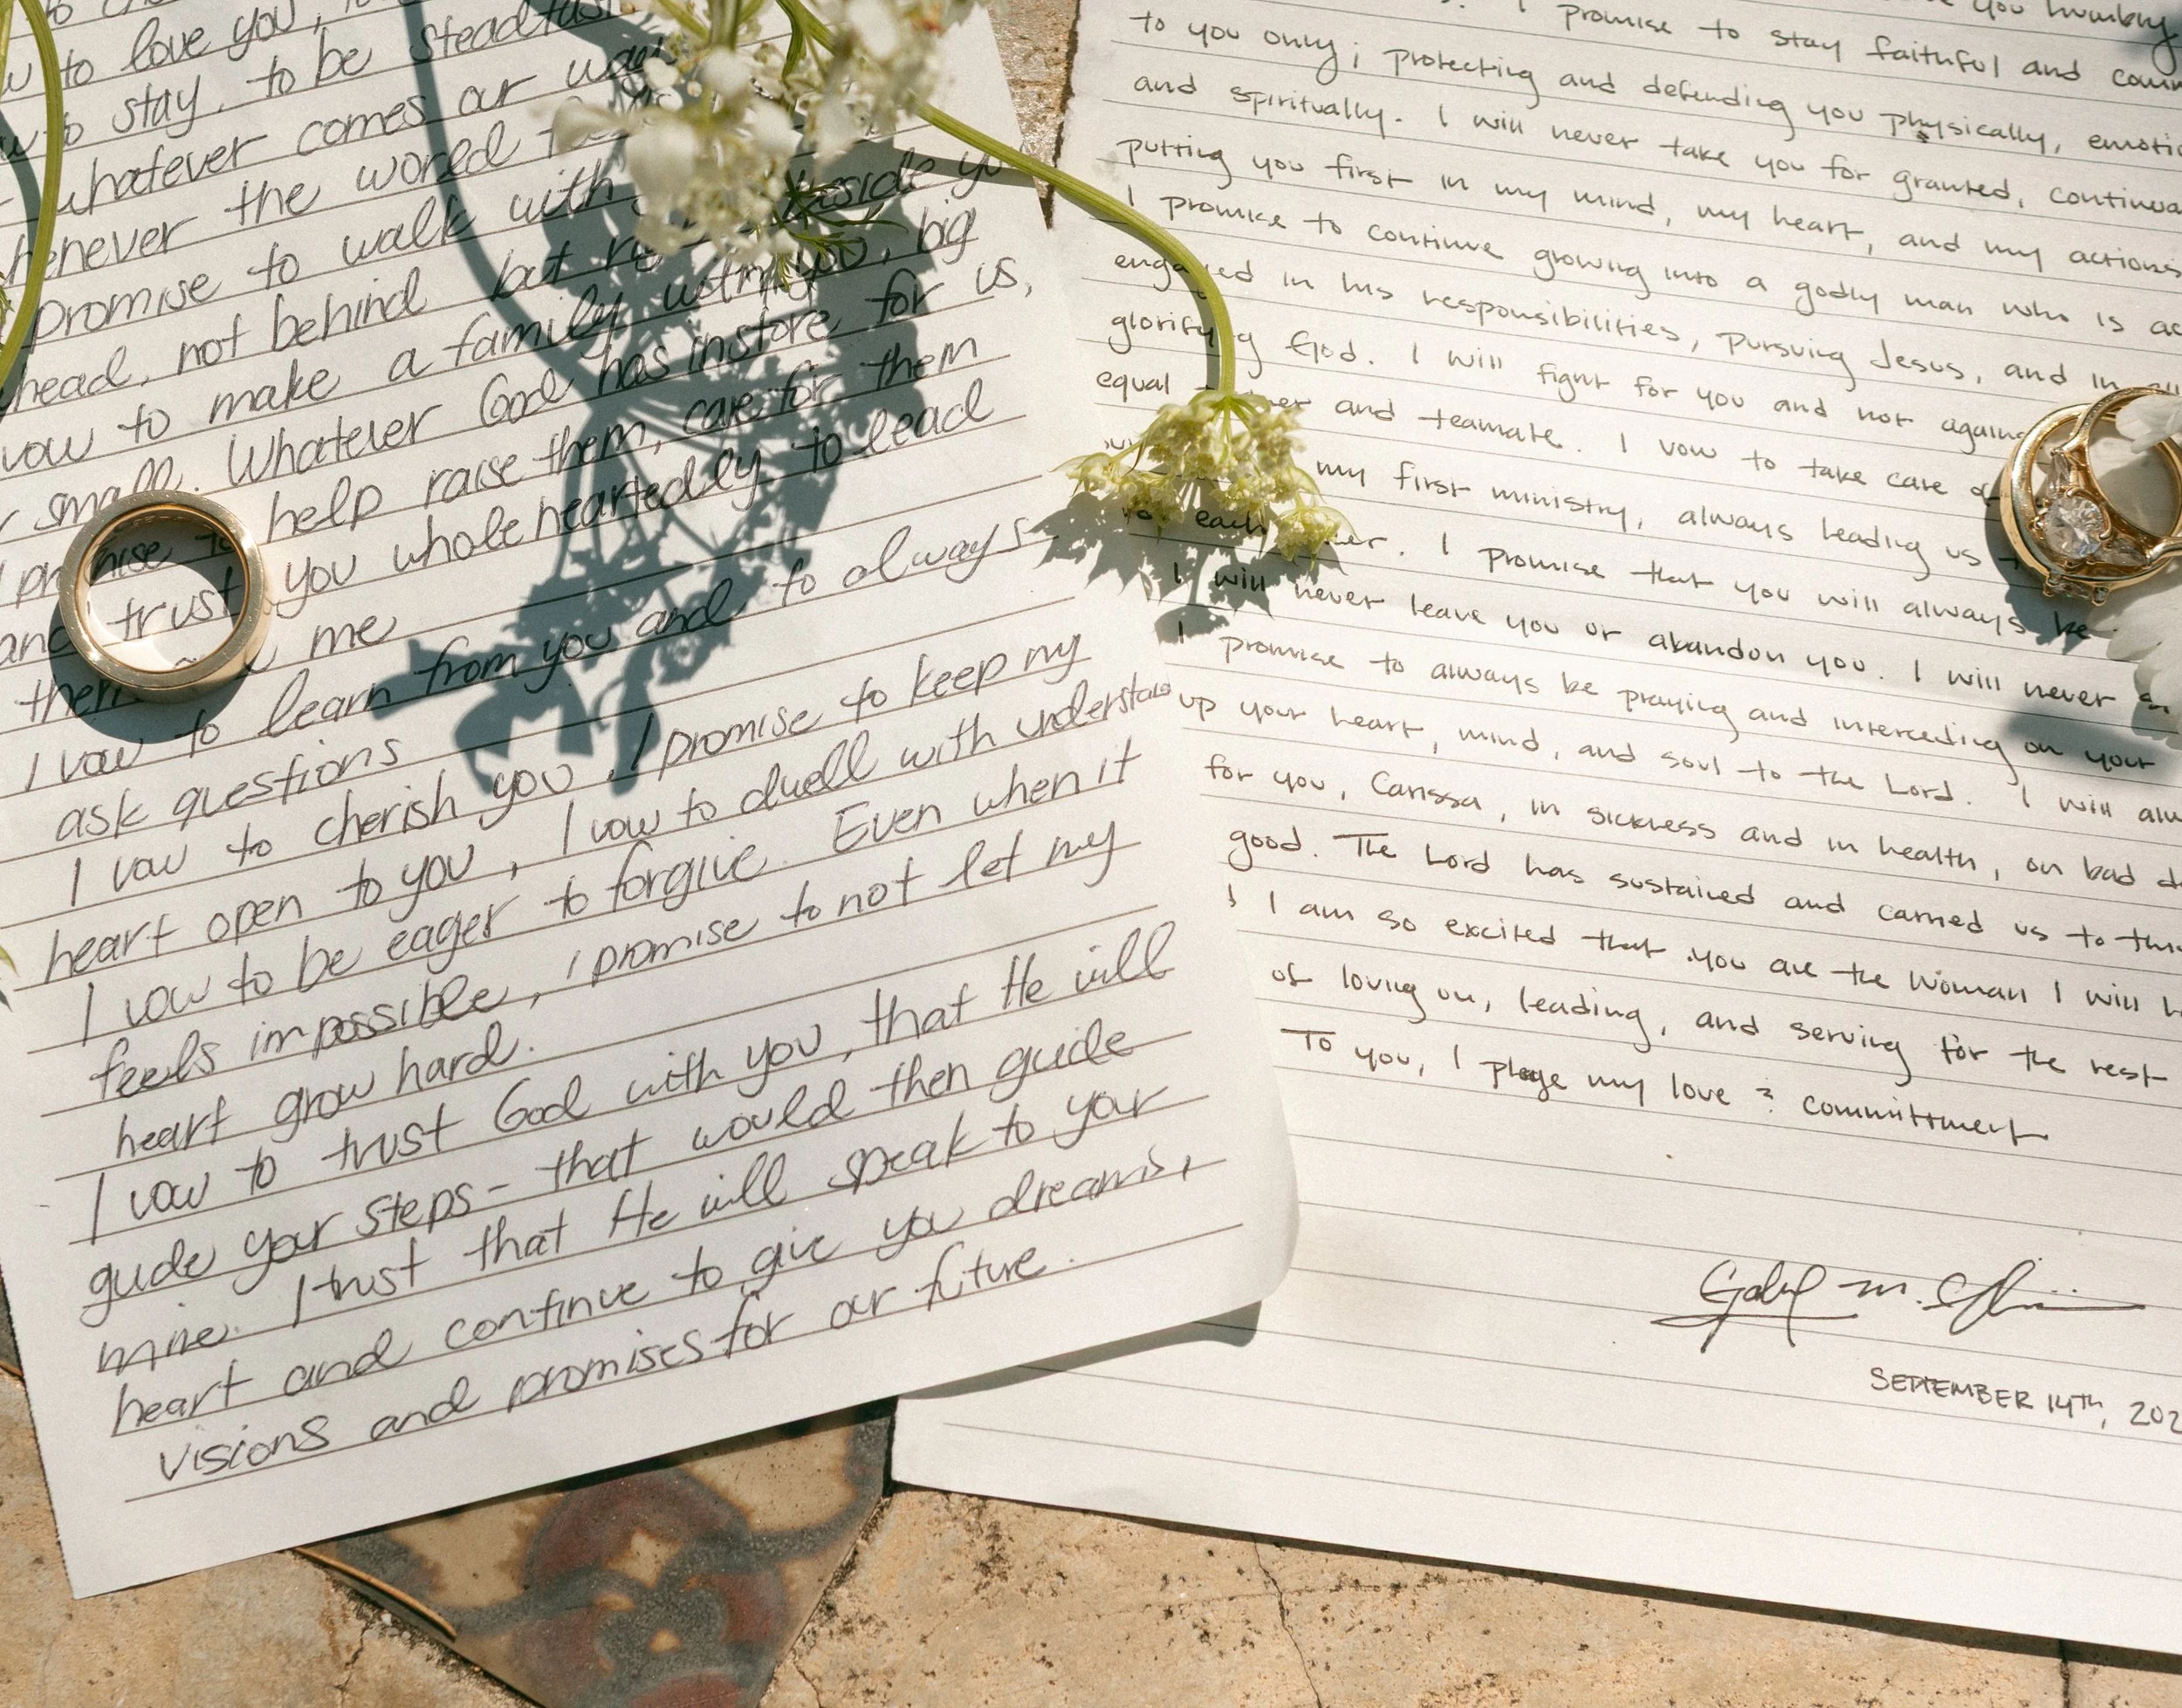 to love you,
to stay, to be steadfast
whatever comes our way
the world
promise to walk with beside
head, not behind but
vow to make a family with you, big
small. Whatever God has instore for us,
help raise them, care for them
and trust you wholeheartedly to lead
me
I vow to learn from you and to always
ask questions
I vow to cherish you. I promise to keep my
heart open to you, I vow to dwell with
I vow to be eager to forgive. Even when it
feels impossible, I promise to not let my
heart grow hard.
I vow to trust God with you, that He will
guide your steps - that would then guide
mine. I trust that He will speak to your
heart and continue to give you dreams,
visions and promises for our future.
you humbly
I promise to stay faithful and
to you only; protecting and defending you physically,
and spiritually. I will never take you for granted,
putting you first in my mind, my heart, and my actions
I promise to continue growing into a godly man who is
in his responsibilities, pursuing Jesus, and in
God. I will fight for you and not
equal and teamate. I vow to take care
my first ministry, always leading us
each I promise that you will always be
I will never leave you or abandon you. I will never
I promise to always be praying and interceding on your
up your heart, mind, and soul to the Lord. I will
for you, Carissa, in sickness and in health, on bad
good. The Lord has sustained and carried us to
I am so excited that you are the woman I will
of loving on, leading, and serving for the rest
To you, I pledge my love & committment
SEPTEMBER 14TH,